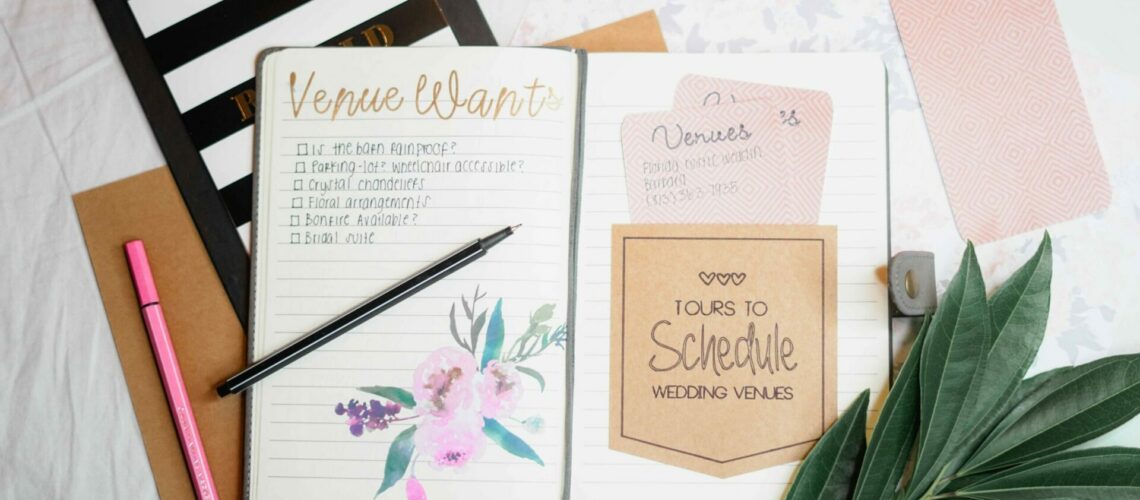 Venue Wants
Is the barn rainproof?
Parking-lot? wheelchair accessible?
Crystal chandeliers
Floral arrangements
Bonfire Available?
Bridal suite
Venues
Florida
TOURS TO
Schedule
WEDDING VENUES